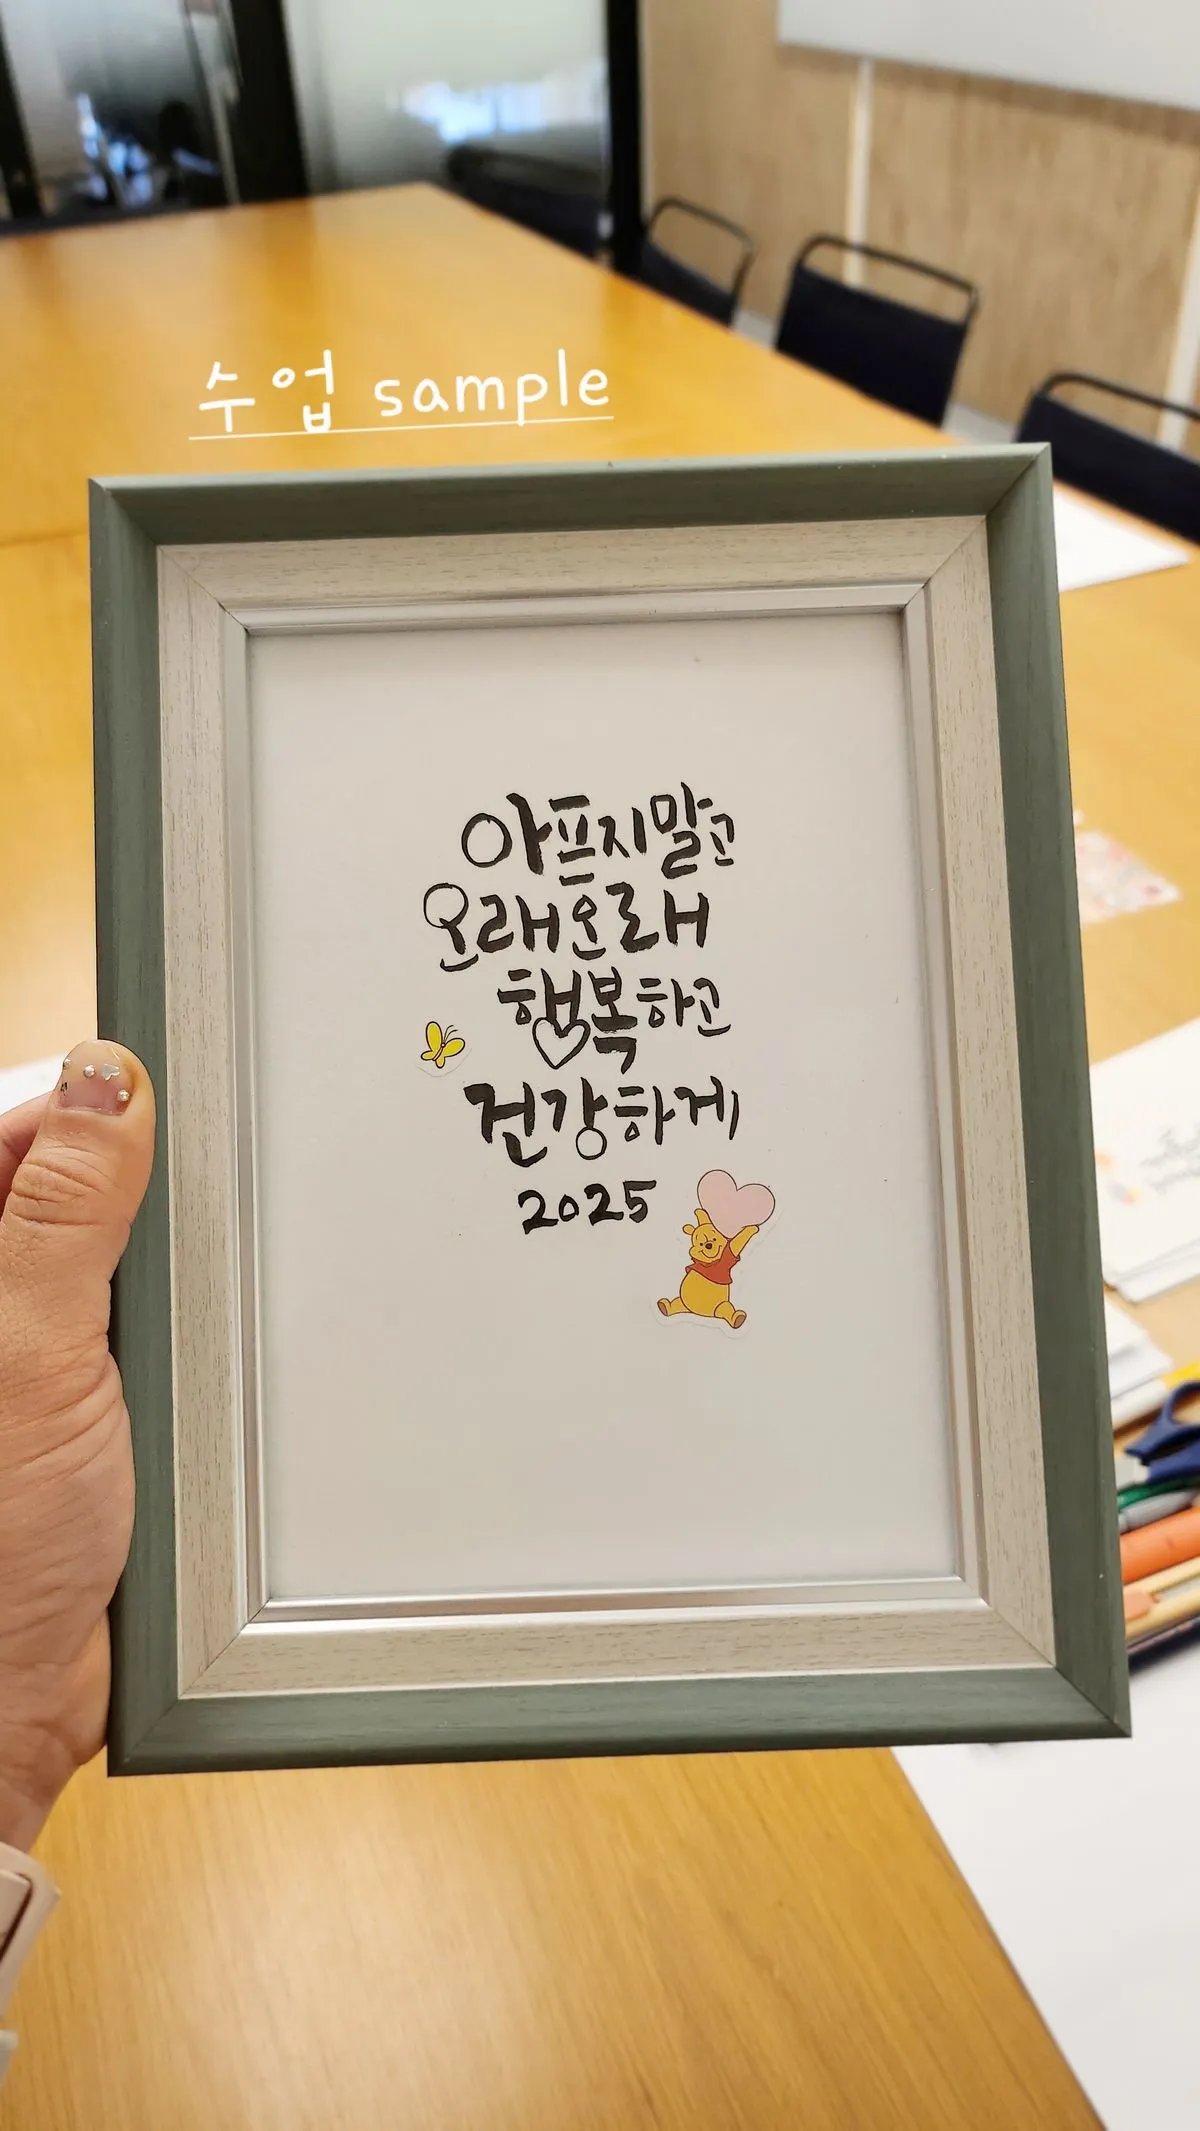 수업 sample
아프지말고
오래오래
행복하고
건강하게
2025